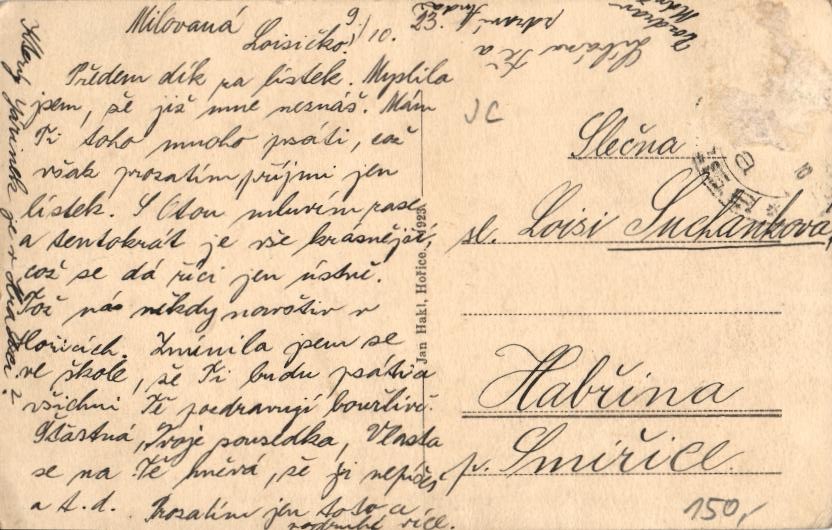 Milovaná 9./10. 23.
Loisičko!
Předem dík za lístek. Myslila
jsem, že již mne neznáš. Mám
Ti toho mnoho psáti, což
však prozatím, přijmi jen
lístek. S Otou mluvím zase
a tentokrát je vše krásnější,
což se dá říci jen ústně.
Tož nás někdy navštiv v
Hořicích. Zmínila jsem se
ve škole, že Ti budu psáti a
všichni Tě pozdravují bouřlivě.
Šťastná, Tvoje sousedka, Vlasta
se na Tě hněvá, že jí nepíšeš
a t.d. Prozatím jen toto a
podruhé více.
Jan Hakl, Hořice, 1923.
JC
Slečna
sl. Loisi Suchánkova,
Habřina
p. Smiřice.
150,-